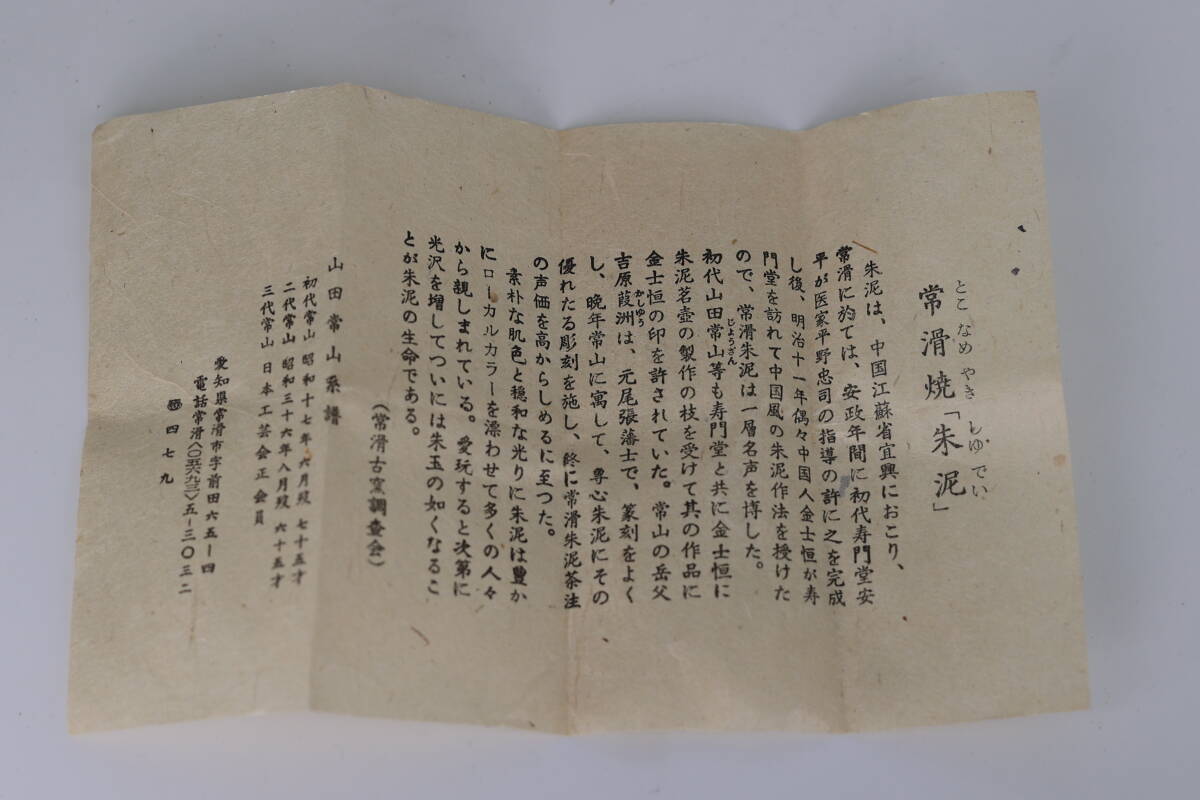 とこなめやき しゆでい
常滑焼「朱泥」
朱泥は、中国江蘇省宜興におこり、
常滑に於ては、安政年間に初代寿門堂安
平が医家平野忠司の指導の許に之を完成
し後、明治十一年偶々中国人金士恒が寿
門堂を訪れて中国風の朱泥作法を授けた
ので、常滑朱泥は一層名声を博した。
じようざん
初代山田常山等も寿門堂と共に金士恒に
朱泥茗壺の製作の枝を受けて其の作品に
金士恒の印を許されていた。常山の岳父
かしゆう
吉原葭洲は、元尾張藩士で、篆刻をよく
し、晩年常山に寓して、専心朱泥にその
優れたる彫刻を施し、終に常滑朱泥茶注
の声価を高からしめるに至つた。
素朴な肌色と穏和な光りに朱泥は豊か
にローカルカラーを漂わせて多くの人々
から親しまれている。愛玩すると次第に
光沢を増してついには朱玉の如くなるこ
とが朱泥の生命である。
(常滑古窯調査会)
山田常山系譜
初代常山 昭和十七年六月歿 七十五才
二代常山 昭和三十六年八月歿 六十五才
三代常山 日本工芸会正会員
愛知県常滑市字前田六五―四
電話常滑(〇五六九三)五―三〇三二
四七九